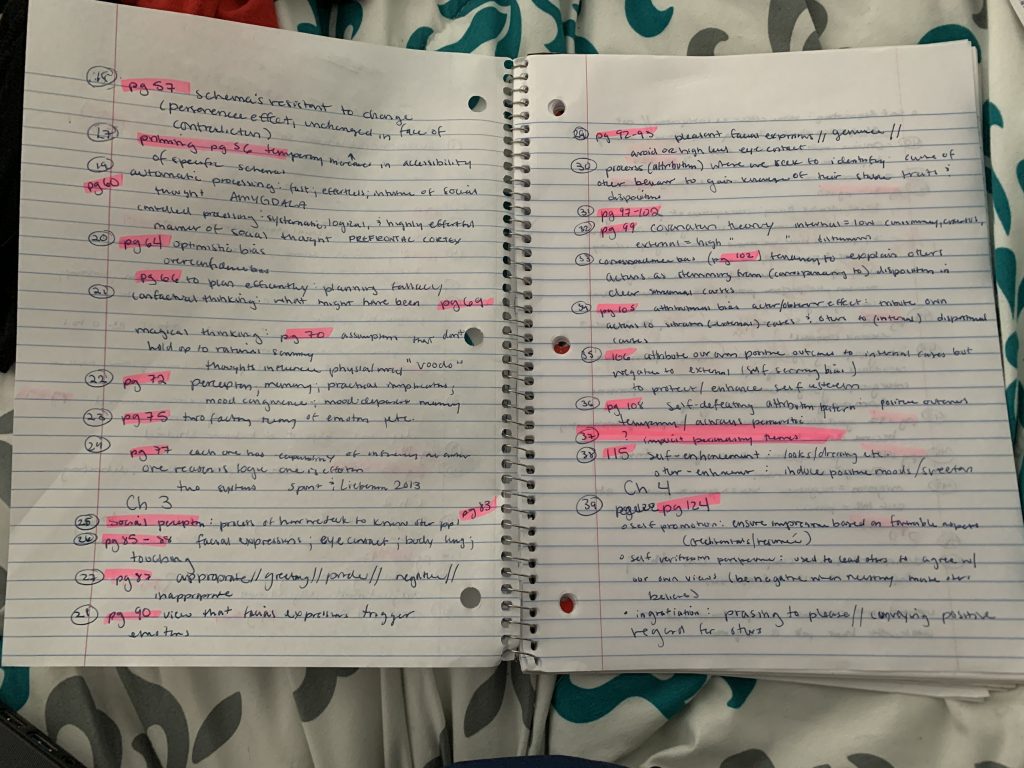 18 pg 57 schema's resistant to change
(perserverence effect, unchanged in face of
contradiction)
17 priming pg 56 temporary increase in accessibility
of specific schemas
19 automatic processing: fast, effortless, intuitive of social
pg 60 thought AMYGDALA
controlled processing: systematic, logical, & highly effortful
manner of social thought PREFRONTAL CORTEX
20 pg 64 optimistic bias
overconfidence bias
pg 66 to plan efficiently: planning fallacy
21 confactual thinking: what might have been pg 69
magical thinking: pg 70 assumptions that don't
hold up to rational scrutiny
thoughts influence physical world "voodo"
22 pg 72 perception, memory; practical implications,
mood congruence; mood dependent memory
23 pg 75 two factory theory of emotion etc.
24 pg 77 each one has capability of
one reason is logic one is emotion
two systems & Lieberman 2013
Ch 3
25 Social perception: process of how we seek to know other ppl pg 83
26 pg 85-88 facial expressions; eye contact; body lang;
touching
27 pg 87 appropriate// greeting// // negative//
inappropriate
28 pg 90 view that facial expressions trigger
emotions
29 pg 92-95 pleasent facial expressions// genuine//
avoid or high level eye contact
30 process (attribution) where we seek to identify cause of
other behavior to gain knowledge of their stable traits &
dispositions
31 pg 97-102
32 pg 99 covariation theory internal = low consensus,
external = high " "
33 correspondence bias (pg 102) tendency to explain others
actions as stemming from (corresponding to) disposition in
clear situational causes
34 pg 105 attributional bias actor/observer effect: own
actions to situation (external) causes & others to (internal) dispositional
causes
35 106 attribute our own positive outcomes to internal causes but
negative to external (self serving bias)
to protect/enhance self esteem
36 pg 108 self-defeating attribution pattern: positive outcomes
temporary/
37 ? implicit personality theories
38 115 self-enhancement: looks/dressing etc.
other-enhancement: induce positive moods/
Ch 4
39 pg 124
self promotion: ensure impressions based on favorable aspects
self verification perspective: used to lead others to agree w/
our own views (be negative when
believes)
• ingratiation: prasing to please// conveying positive
regard for others